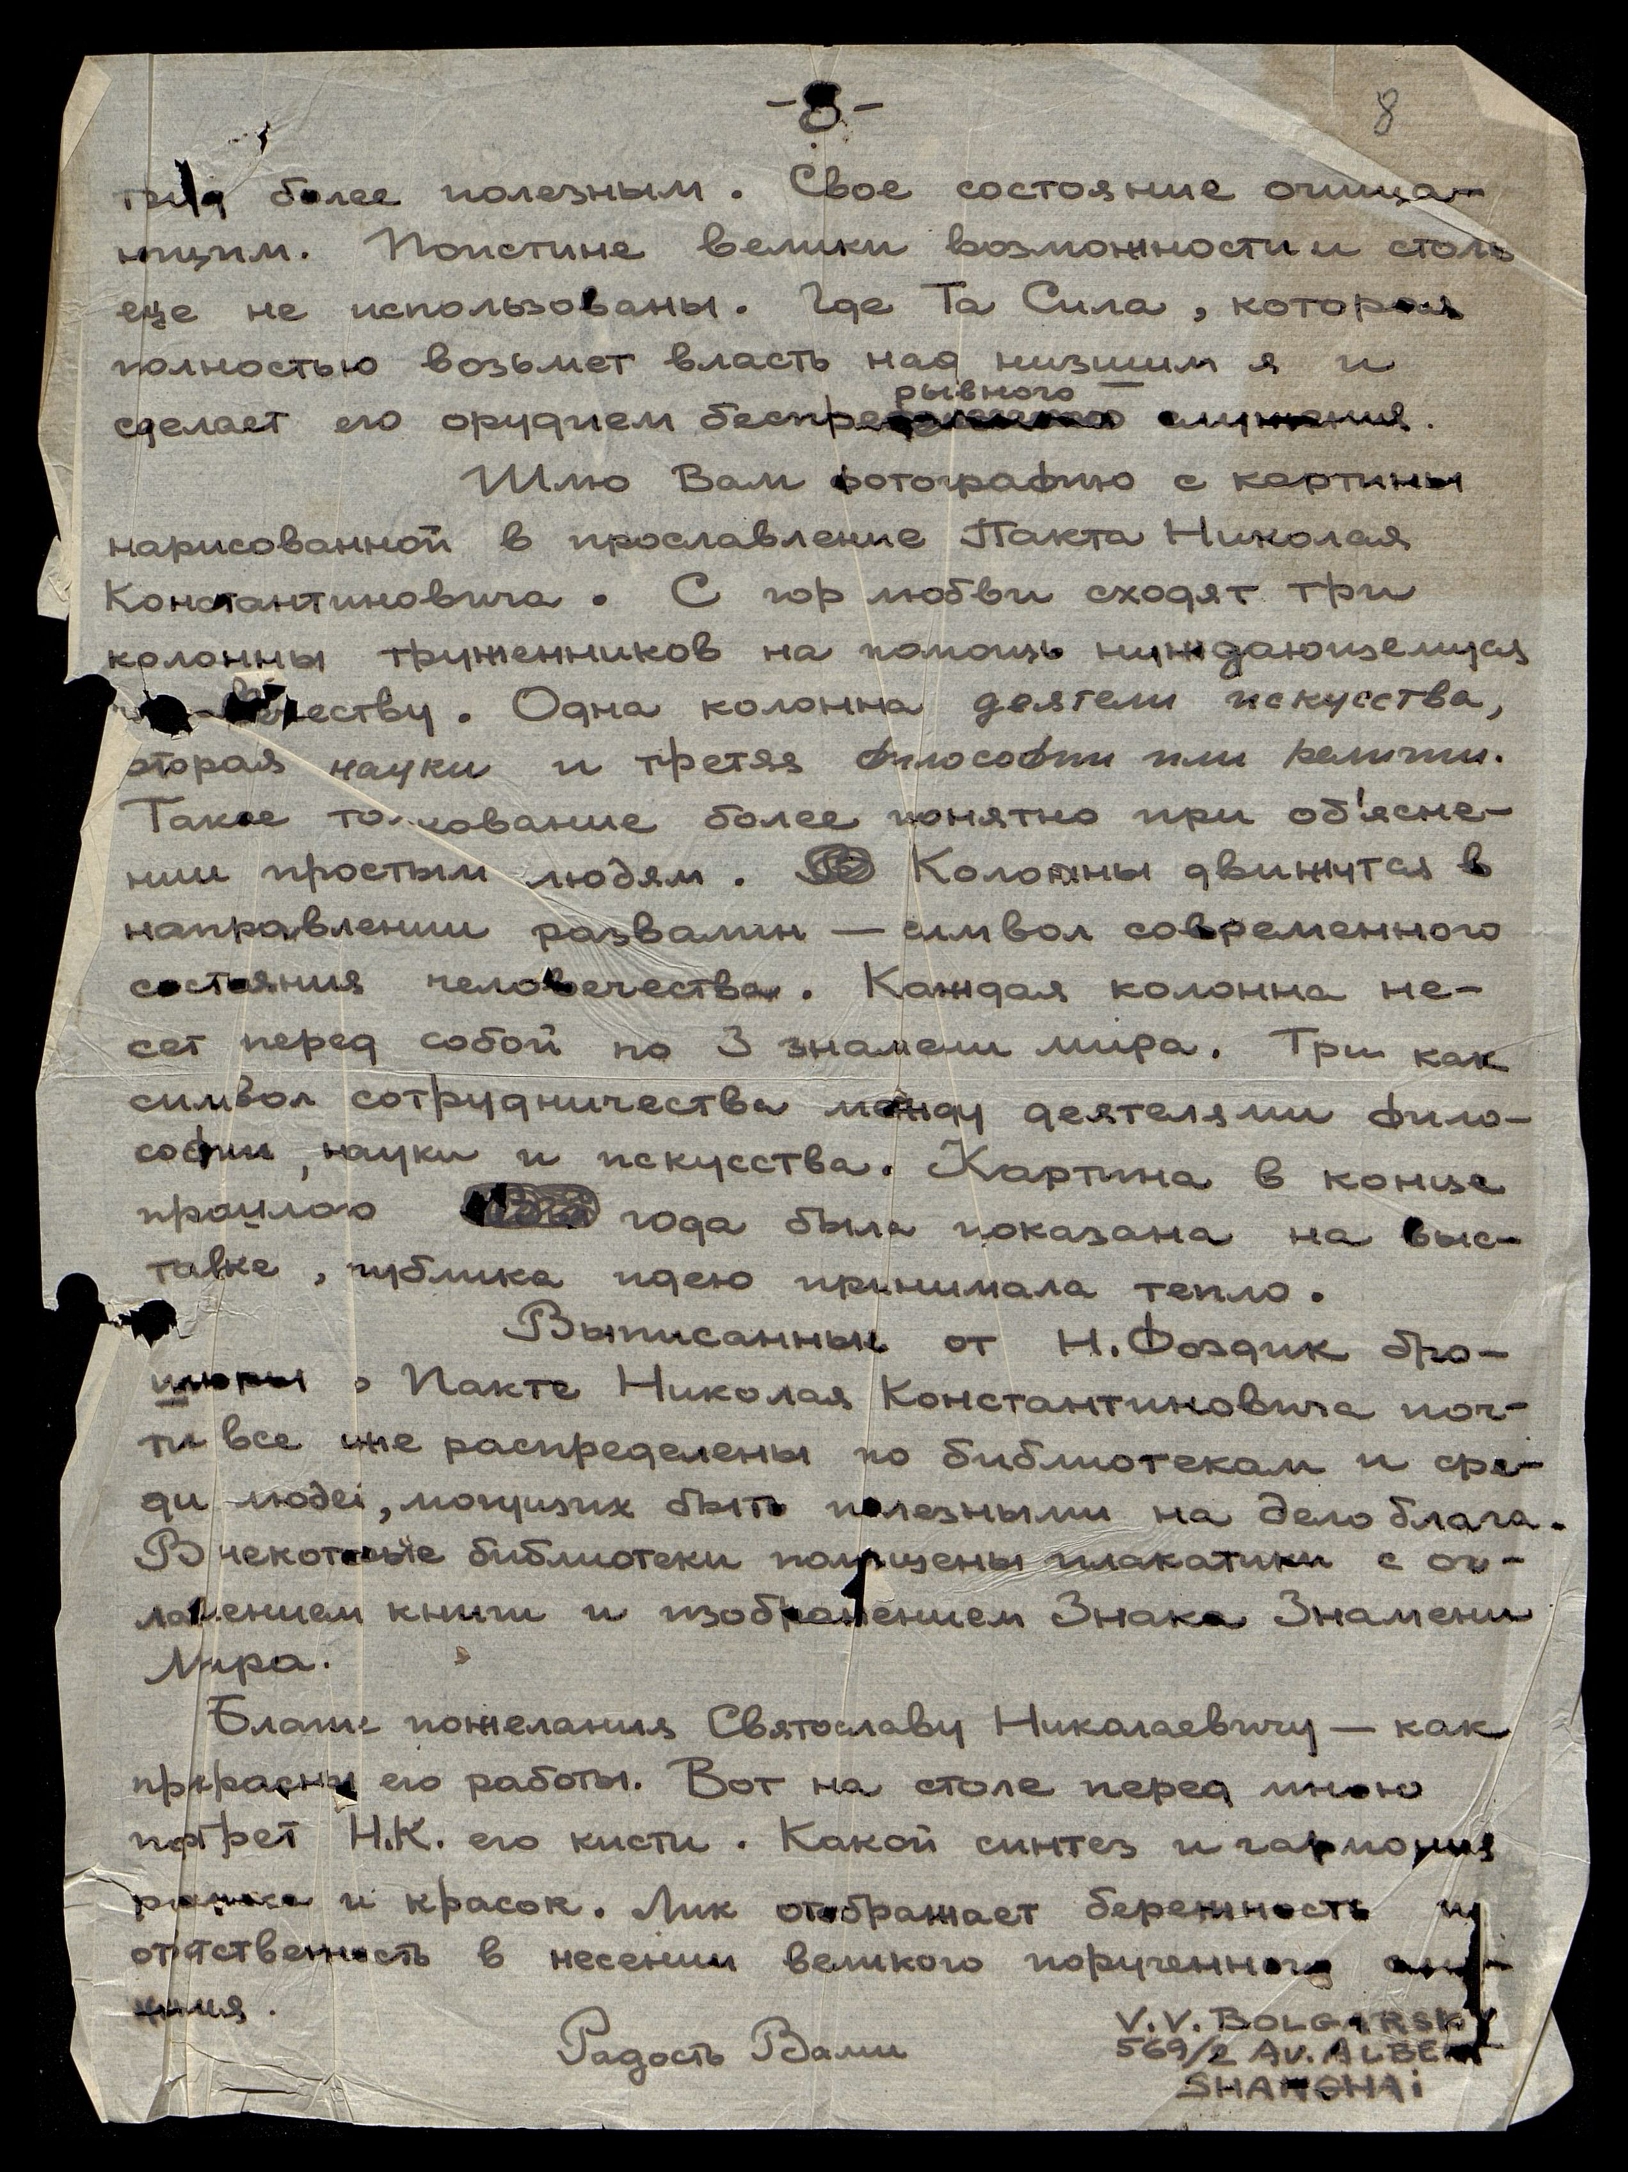 -8- 8
более полезным. Свое состояние очища-
ющим. Поистине велики возможности и столь
еще не использованы. Где Та Сила, которая
полностью возьмет власть над низшим я и
рывного
сделает его орудием беспре служения.
Шлю Вам фотографию с картины
нарисованной в прославление Пакта Николая
Константиновича. С гор любви сходят три
колонны труженников на помощь нуждающемуся
человечеству. Одна колонна деятели искусства,
вторая науки и третяя философии или религии.
Такое толкование более понятно при об'ясне-
нии простым людям. Колонны движутся в
направлении развалин — символ современного
состояния человечества. Каждая колонна не-
сет перед собой по 3 знамени мира. Три как
символ сотрудничества между деятелями фило-
софии, науки и искусства. Картина в конце
прошлого года была показана на выс-
тавке, публика идею принимала тепло.
Выписанные от Н. Фоздик бро-
шюры о Пакте Николая Константиновича поч-
ти все уже распределены по библиотекам и сре-
ди людей, могущих быть полезными на дело блага.
В некоторые библиотеки помещены плакатики с ог-
лавлением книги и изображением Знака Знамени
Мира.
Благие пожелания Святославу Николаевичу — как
прекрасны его работы. Вот на столе перед мною
портрет Н.К. его кисти. Какой синтез и гармония
и красок. Лик отображает бережность и
ответственность в несении великого порученного слу-
жения.
Радость Вами
V.V. BOLGARSKY
569/2 AV. ALBERT
SHANGHAI